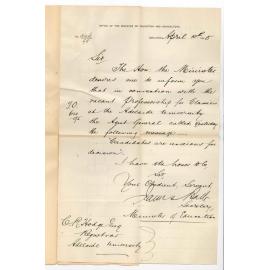 OFFICE OF THE MINISTER OF EDUCATION AND AGRICULTURE,
April
Sir
The Hon the Minister
desires me to inform you
that in connection with the
vacant Professorship for Classics
at the Adelaide University
the Agent General cabled yesterday
the following message
Candidates are anxious for
decision
I have the honor to be
Sir
Your Obedient Servant
Secretary
Minister of Education
C. R. Hodge Esq
Registrar
Adelaide University